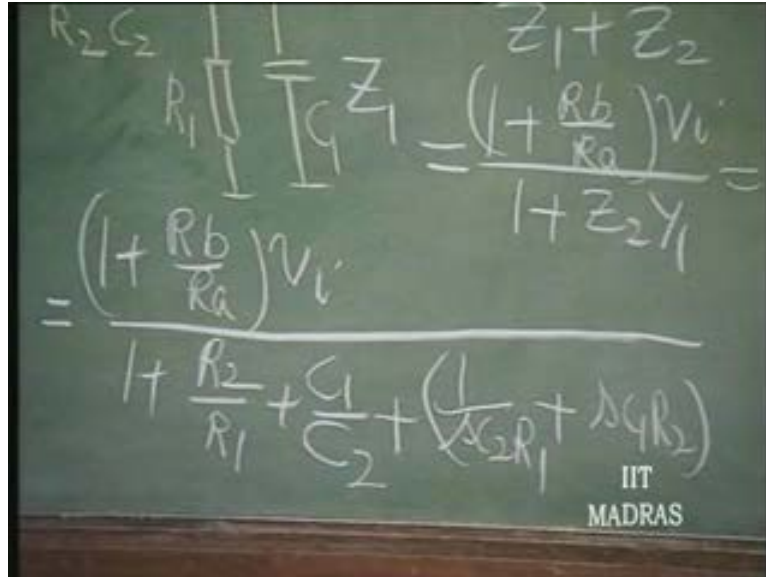 R2C2
Z1 + Z2
R1 C1 Z1
= (1 + Rb/Ra) Vi / 1 + Z2Y1 =
= (1 + Rb/Ra) Vi / 1 + R2/R1 + C1/C2 + (1/sC2R1 + sC1R2)
IIT
MADRAS